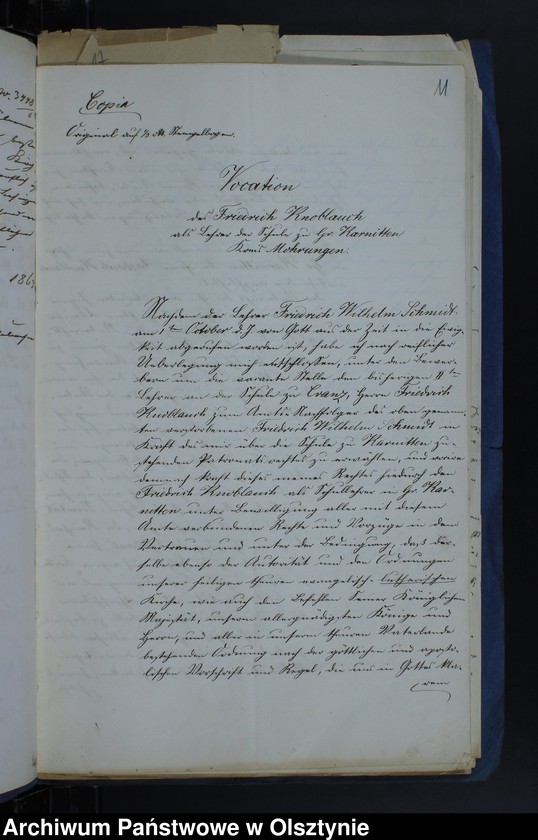 17
11
Nr. 3448
186
Copia
Original auf ½ rtl. Stempelbogen.
Vocation
des Friedrich Knoblauch
als Lehrer der Schule zu Gr. Karnitten
Kreis Mohrungen.
Nachdem der Lehrer Friedrich Wilhelm Schmidt
am 1ten October d. J. von Gott aus der Zeit in die Ewig-
keit abgerufen worden ist, habe ich nach reiflicher
Ueberlegung mich entschlossen, unter den Bewer-
bern um die vacante Stelle den bisherigen IIten
Lehrer an der Schule zu Cranz, Herrn Friedrich
Knoblauch zum Amts-Nachfolger des oben genann-
ten verstorbenen Friedrich Wilhelm Schmidt in
Kraft des mir über die Schule zu Karnitten zu-
stehenden Patronatsrechtes zu erwählen, und
demnach Kraft dieses meines Rechtes hiedurch den
Friedrich Knoblauch als Schullehrer in Gr. Kar-
nitten unter Bewilligung aller mit diesem
Amte verbundenen Rechte und Vorzüge in dem
Vertrauen und unter der Bedingung, daß der-
selbe ebenso der Autorität und den Ordnungen
unserer heiligen theuren evangelisch-lutherischen
Kirche, wie auch den Befehlen Seiner Königlichen
Majestät, unseres allergnädigsten Königs und
Herrn, und aller in unserm theuren Vaterlande
bestehenden Ordnung nach der göttlichen und aposto-
lischen Vorschrift und Regel, die uns in Gottes Na-
men
Archiwum Państwowe w Olsztynie